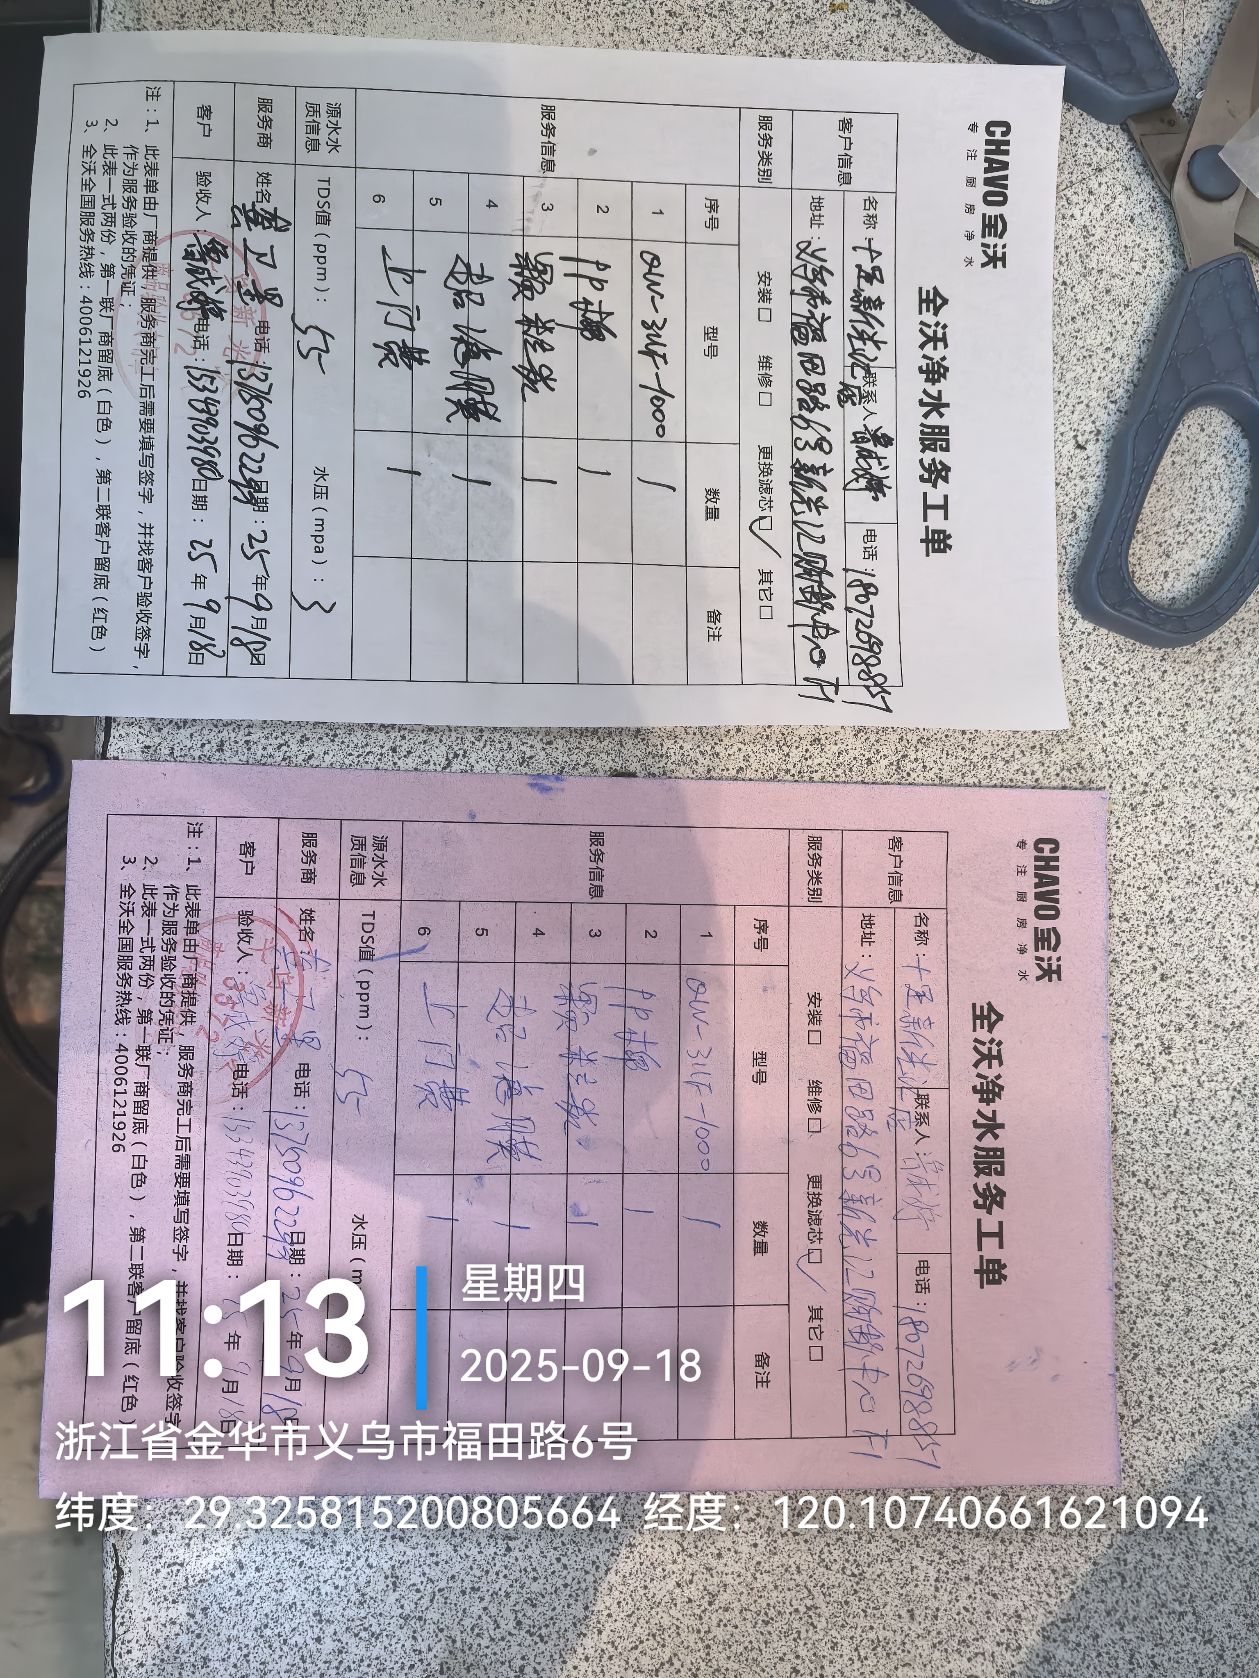 CHAVO 全沃
专注厨房净水
全沃净水服务工单
客户信息
名称：十足新光汇店
联系人
电话：18072698857
地址：义乌市福田路6号新光汇购物中心F1
服务类别
安装□ 维修□ 更换滤芯☑ 其它□
服务信息
序号 型号 数量 备注
1 QW-3UF-1000 1
2 PP棉 1
3 颗粒炭 1
4 超滤膜 1
5 上门费 1
6
源水水质信息
TDS值（ppm）：55 水压（mpa）：3
服务商
姓名 卫星 电话：13750962299 日期：25年9月18日
客户
验收人： 电话：15343903980 日期：25年9月18日
注：1、此表单由厂商提供，服务商完工后需要填写签字，并找客户验收签字，
作为服务验收的凭证；
2、此表一式两份，第一联厂商留底（白色），第二联客户留底（红色）
3、全沃全国服务热线：4006121926
CHAVO 全沃
专注厨房净水
全沃净水服务工单
客户信息
名称：十足新光汇店
联系人
电话：18072698857
地址：义乌市福田路6号新光汇购物中心F1
服务类别
安装□ 维修□ 更换滤芯☑ 其它□
服务信息
序号 型号 数量 备注
1 QW-3UF-1000 1
2 PP棉 1
3 颗粒炭 1
4 超滤膜 1
5 上门费 1
6
源水水质信息
TDS值（ppm）：55 水压（m
服务商
姓名： 卫星 电话：13750962299 日期：25年9月18日
客户
验收人： 电话：15343903980 日期： 年9月18日
注：1、此表单由厂商提供，服务商完工后需要填写签字，并找客户验收签字
作为服务验收的凭证；
2、此表一式两份，第一联厂商留底（白色），第二联客户留底（红色）
3、全沃全国服务热线：4006121926
11:13
星期四
2025-09-18
浙江省金华市义乌市福田路6号
纬度：29.325815200805664 经度：120.10740661621094